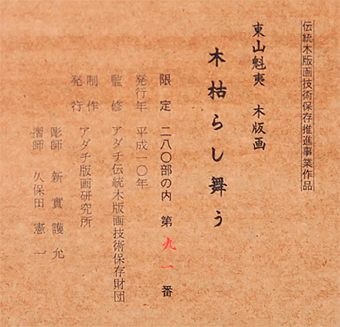 伝統木版画技術保存推進事業作品
東山魁夷 木版画
木枯らし舞う
限定 二八〇部の内 第九一番
発行年 平成一〇年
監修 アダチ伝統木版画技術保存財団
制作 アダチ版画研究所
発行
彫師 新實護允
摺師 久保田憲一